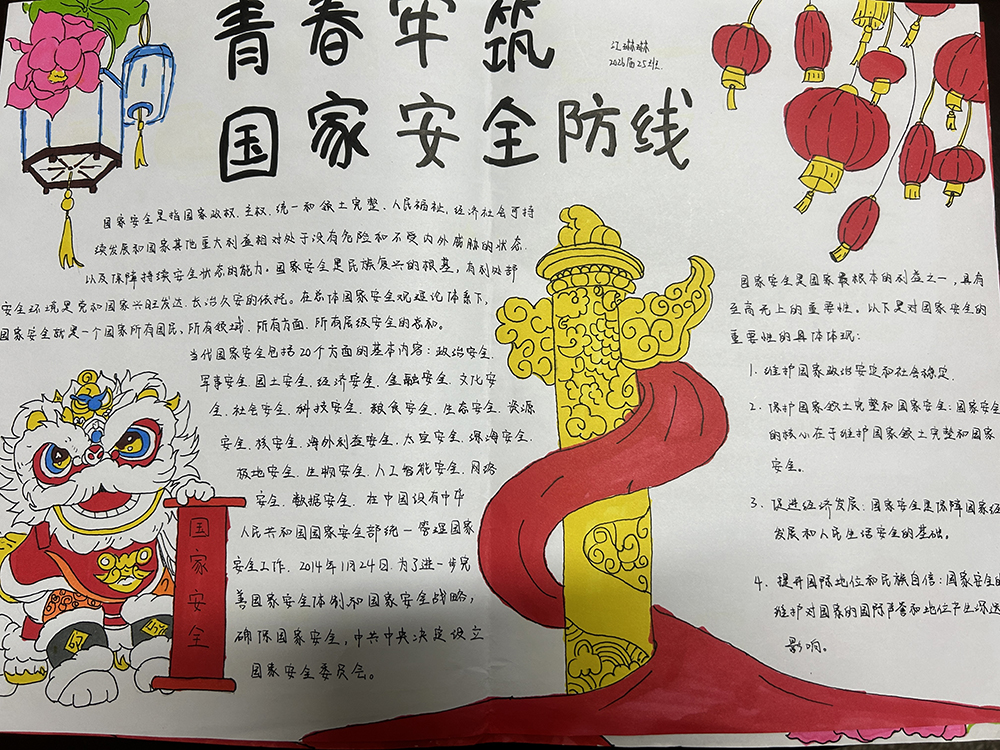 青春牢筑
国家安全防线
江琳琳
2026届25班
国家安全是指国家政权、主权、统一和领土完整、人民福祉、经济社会可持
续发展和国家其他重大利益相对处于没有危险和不受内外威胁的状态,
以及保障持续安全状态的能力。国家安全是民族复兴的根基,有利处部
安全环境是党和国家兴旺发达、长治久安的依托。在总体国家安全观理论体系下,
国家安全就是一个国家所有国民、所有领域、所有方面、所有层级安全的总和。
当代国家安全包括20个方面的基本内容:政治安全、
军事安全、国土安全、经济安全、金融安全、文化安
全、社会安全、科技安全、粮食安全、生态安全、资源
安全、核安全、海外利益安全、太空安全、深海安全、
极地安全、生物安全、人工智能安全、网络
安全、数据安全。在中国设有中华
人民共和国国家安全部统一管理国家
安全工作。2014年1月24日,为了进一步完
善国家安全体制和国家安全战略,
确保国家安全,中共中央决定设立
国家安全委员会。
国家安全
国家安全是国家最根本的利益之一,具有
至高无上的重要性。以下是对国家安全的
重要性的具体体现:
1. 维护国家政治安定和社会稳定。
2. 保护国家领土完整和国家安全:国家安全
的核心在于维护国家领土完整和国家
安全。
3. 促进经济发展:国家安全是保障国家经
发展和人民生活安全的基础。
4. 提升国际地位和民族自信:国家安全的
维护对国家的国际声誉和地位产生深远
影响。